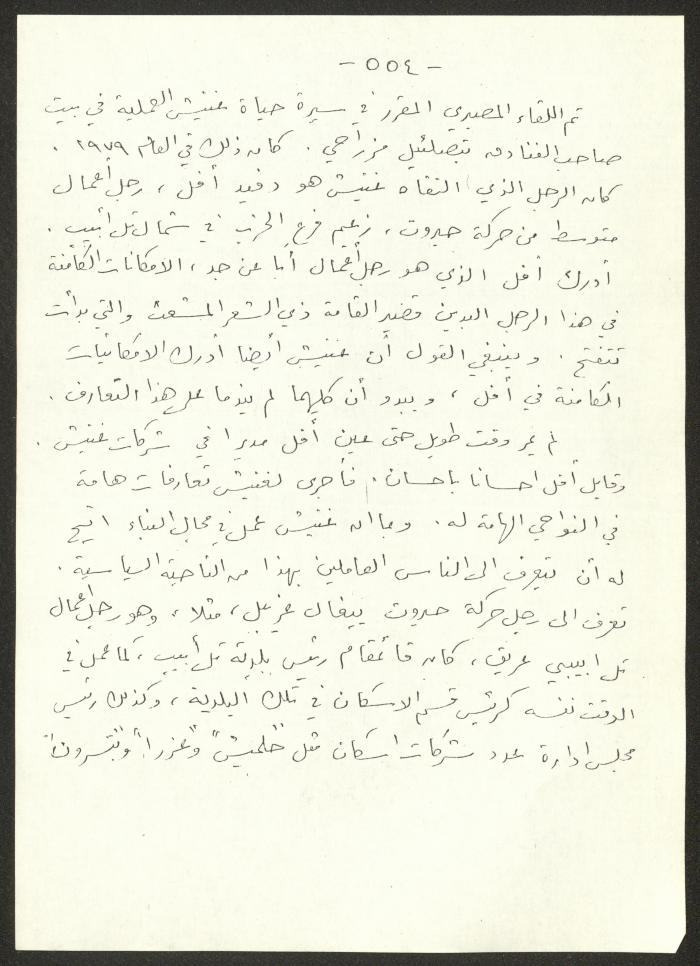 - ٥٥٤ -
تم اللقاء المصيري المقرر في سيرة حياة غنيش العملية في بيت
صاحب الفنادق بتصلئيل مزراحي . كان ذلك في العام ١٩٧٩ .
كان الرجل الذي التقاه غنيش هو دفيد أفل ، رجل أعمال
متوسط من حركة حيروت ، زعيم فرع الحزب في شمال تل أبيب .
أدرك أفل الذي هو رجل أعمال أبا عن جد ، الامكانات الكامنة
في هذا الرجل البدين قصير القامة ذي الشعر المشعث والتي بدأت
تتفتح . وينبغي القول أن غنيش أيضا أدرك الامكانيات
الكامنة في أفل ، ويبدو أن كليهما لم يندما على هذا التعارف .
لم يمر وقت طويل حتى عين أفل مديرا في شركات غنيش .
وقابل أفل احسانا باحسان . فأجرى لغنيش تعارفات هامة
في النواحي الهامة له . وبما انه غنيش عمل في مجال البناء اتيح
له أن يتعرف الى الناس العاملين بهذا من الناحية السياسية .
تعرف الى رجل حركة حيروت ييغال غريبل ، مثلا ، وهو رجل أعمال
تل ابيبي عريق ، كان قائمقام رئيس بلدية تل أبيب ، كما عمل في
الوقت نفسه كرئيس قسم الاسكان في تلك البلدية ، وكذلك رئيس
مجلس ادارة عدد شركات اسكان مثل "حلميش" و"عزرا" و"بتسرون"